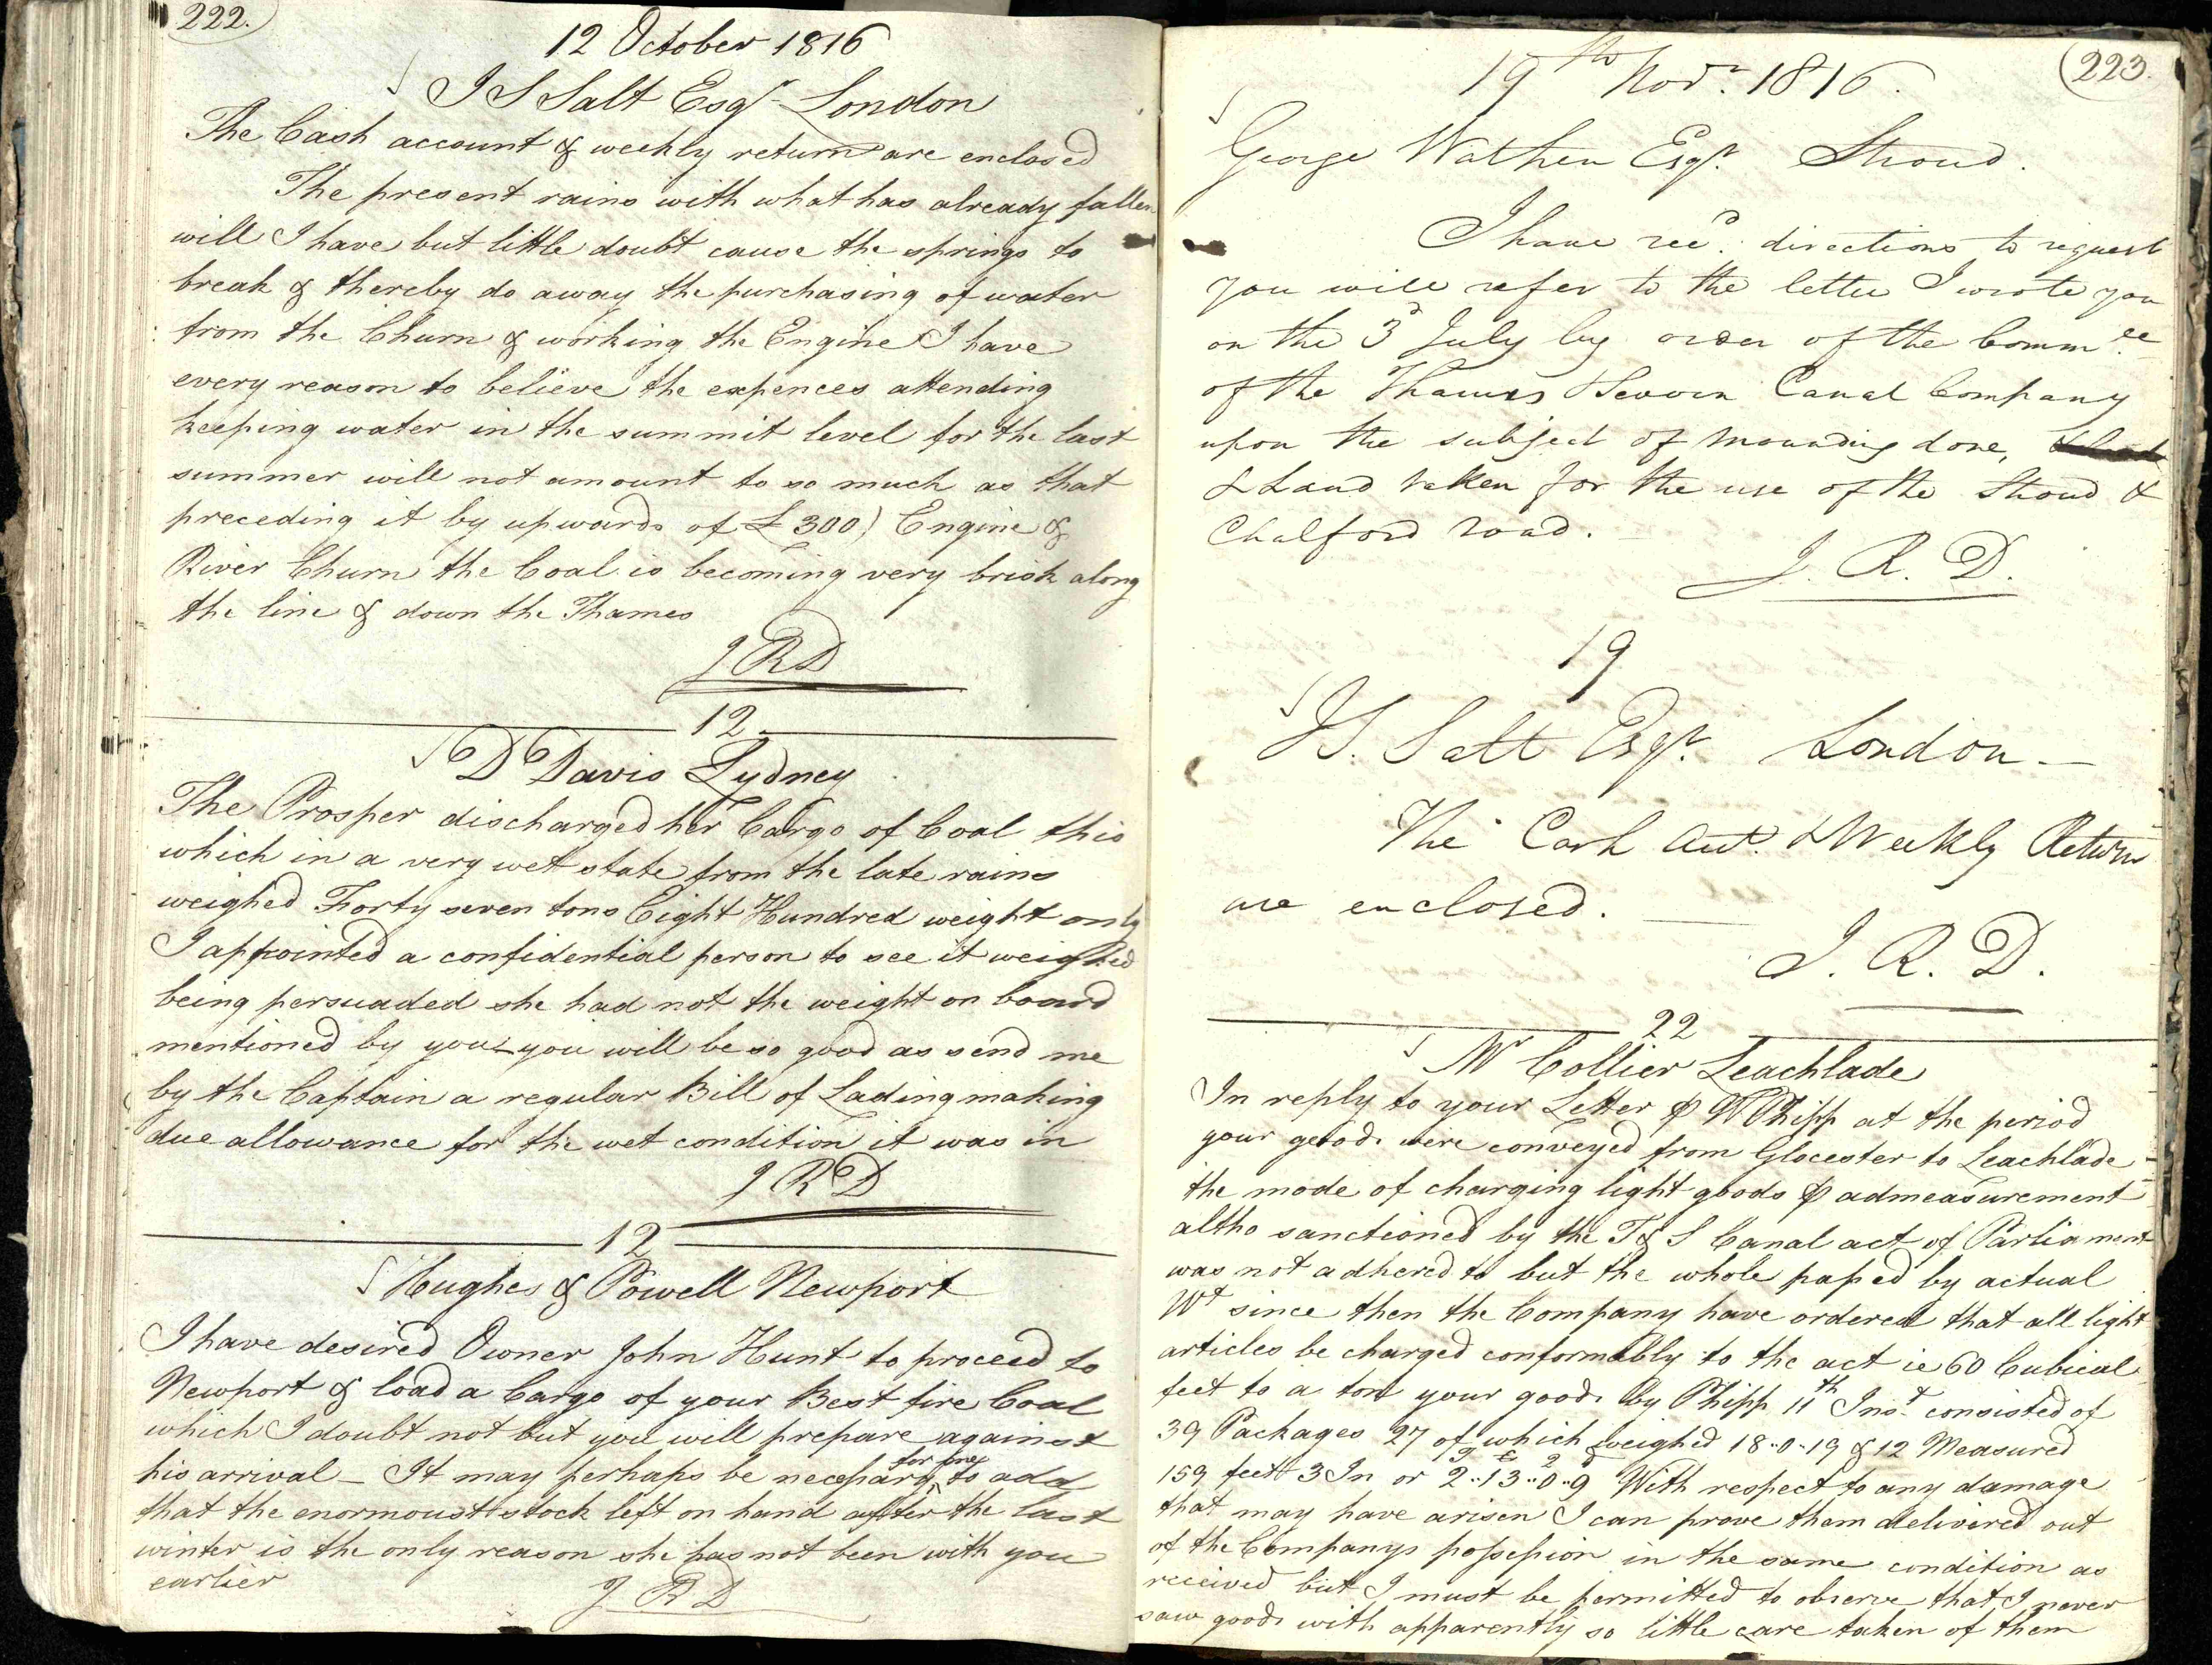 222.
12 October 1816
J S Salt Esqr London
The Cash account & weekly return are enclosed
The present rains with what has already fallen
will I have but little doubt cause the springs to
break & thereby do away the purchasing of water
from the Churn & working the Engine I have
every reason to believe the expences attending
keeping water in the summit level for the last
summer will not amount to so much as that
preceding it by upwards of £300) Engine &
River Churn the Coal is becoming very brisk along
the line & down the Thames
J R D
12
D Davis Lydney
The Prosper discharged her Cargo of Coal this
which in a very wet state from the late rains
weighed Forty seven tons Eight Hundred weight only
I appointed a confidential person to see it weighed
being persuaded she had not the weight on board
mentioned by you you will be so good as send me
by the Captain a regular Bill of Lading making
due allowance for the wet condition it was in
J R D
12
Hughes & Powell Newport
I have desired Owner John Hunt to proceed to
Newport & load a Cargo of your Best fire Coal
which I doubt not but you will prepare against
his arrival – It may perhaps be necessary for me to add
that the enormoust stock left on hand after the last
winter is the only reason she has not been with you
earlier
J R D
223.
19th Novr. 1816.
George Wathen Esqr. Stroud.
I have recd. directions to request
you will refer to the letter I wrote you
on the 3d July by order of the Commee.
of the Thames & Severn Canal Company
upon the subject of Mounding done,
& Land taken for the use of the Stroud &
Chalford road.
J. R. D.
19
J S. Salt Esqr. London –
The Cash Acct. & Weekly Return
are enclosed.
J. R. D.
22
Mr Collier Leachlade
In reply to your Letter ⅌ W Phipp at the period
your goods were conveyed from Glocester to Leachlade
the mode of charging light goods ⅌ admeasurement
altho sanctioned by the T & S Canal act of Parliament
was not adhered to but the whole passed by actual
Wt since then the Company have ordered that all light
articles be charged conformably to the act ie 60 Cubical
feet to a ton your goods by Phipp 11th Inst. consisted of
39 Packages 27 of which weighed 18..0..19 & 12 Measured
159 feet 3 In or 2..13..0..9 With respect to any damage
that may have arisen I can prove them delivered out
of the Companys possession in the same condition as
received but I must be permitted to observe that I never
saw goods with apparently so little care taken of them